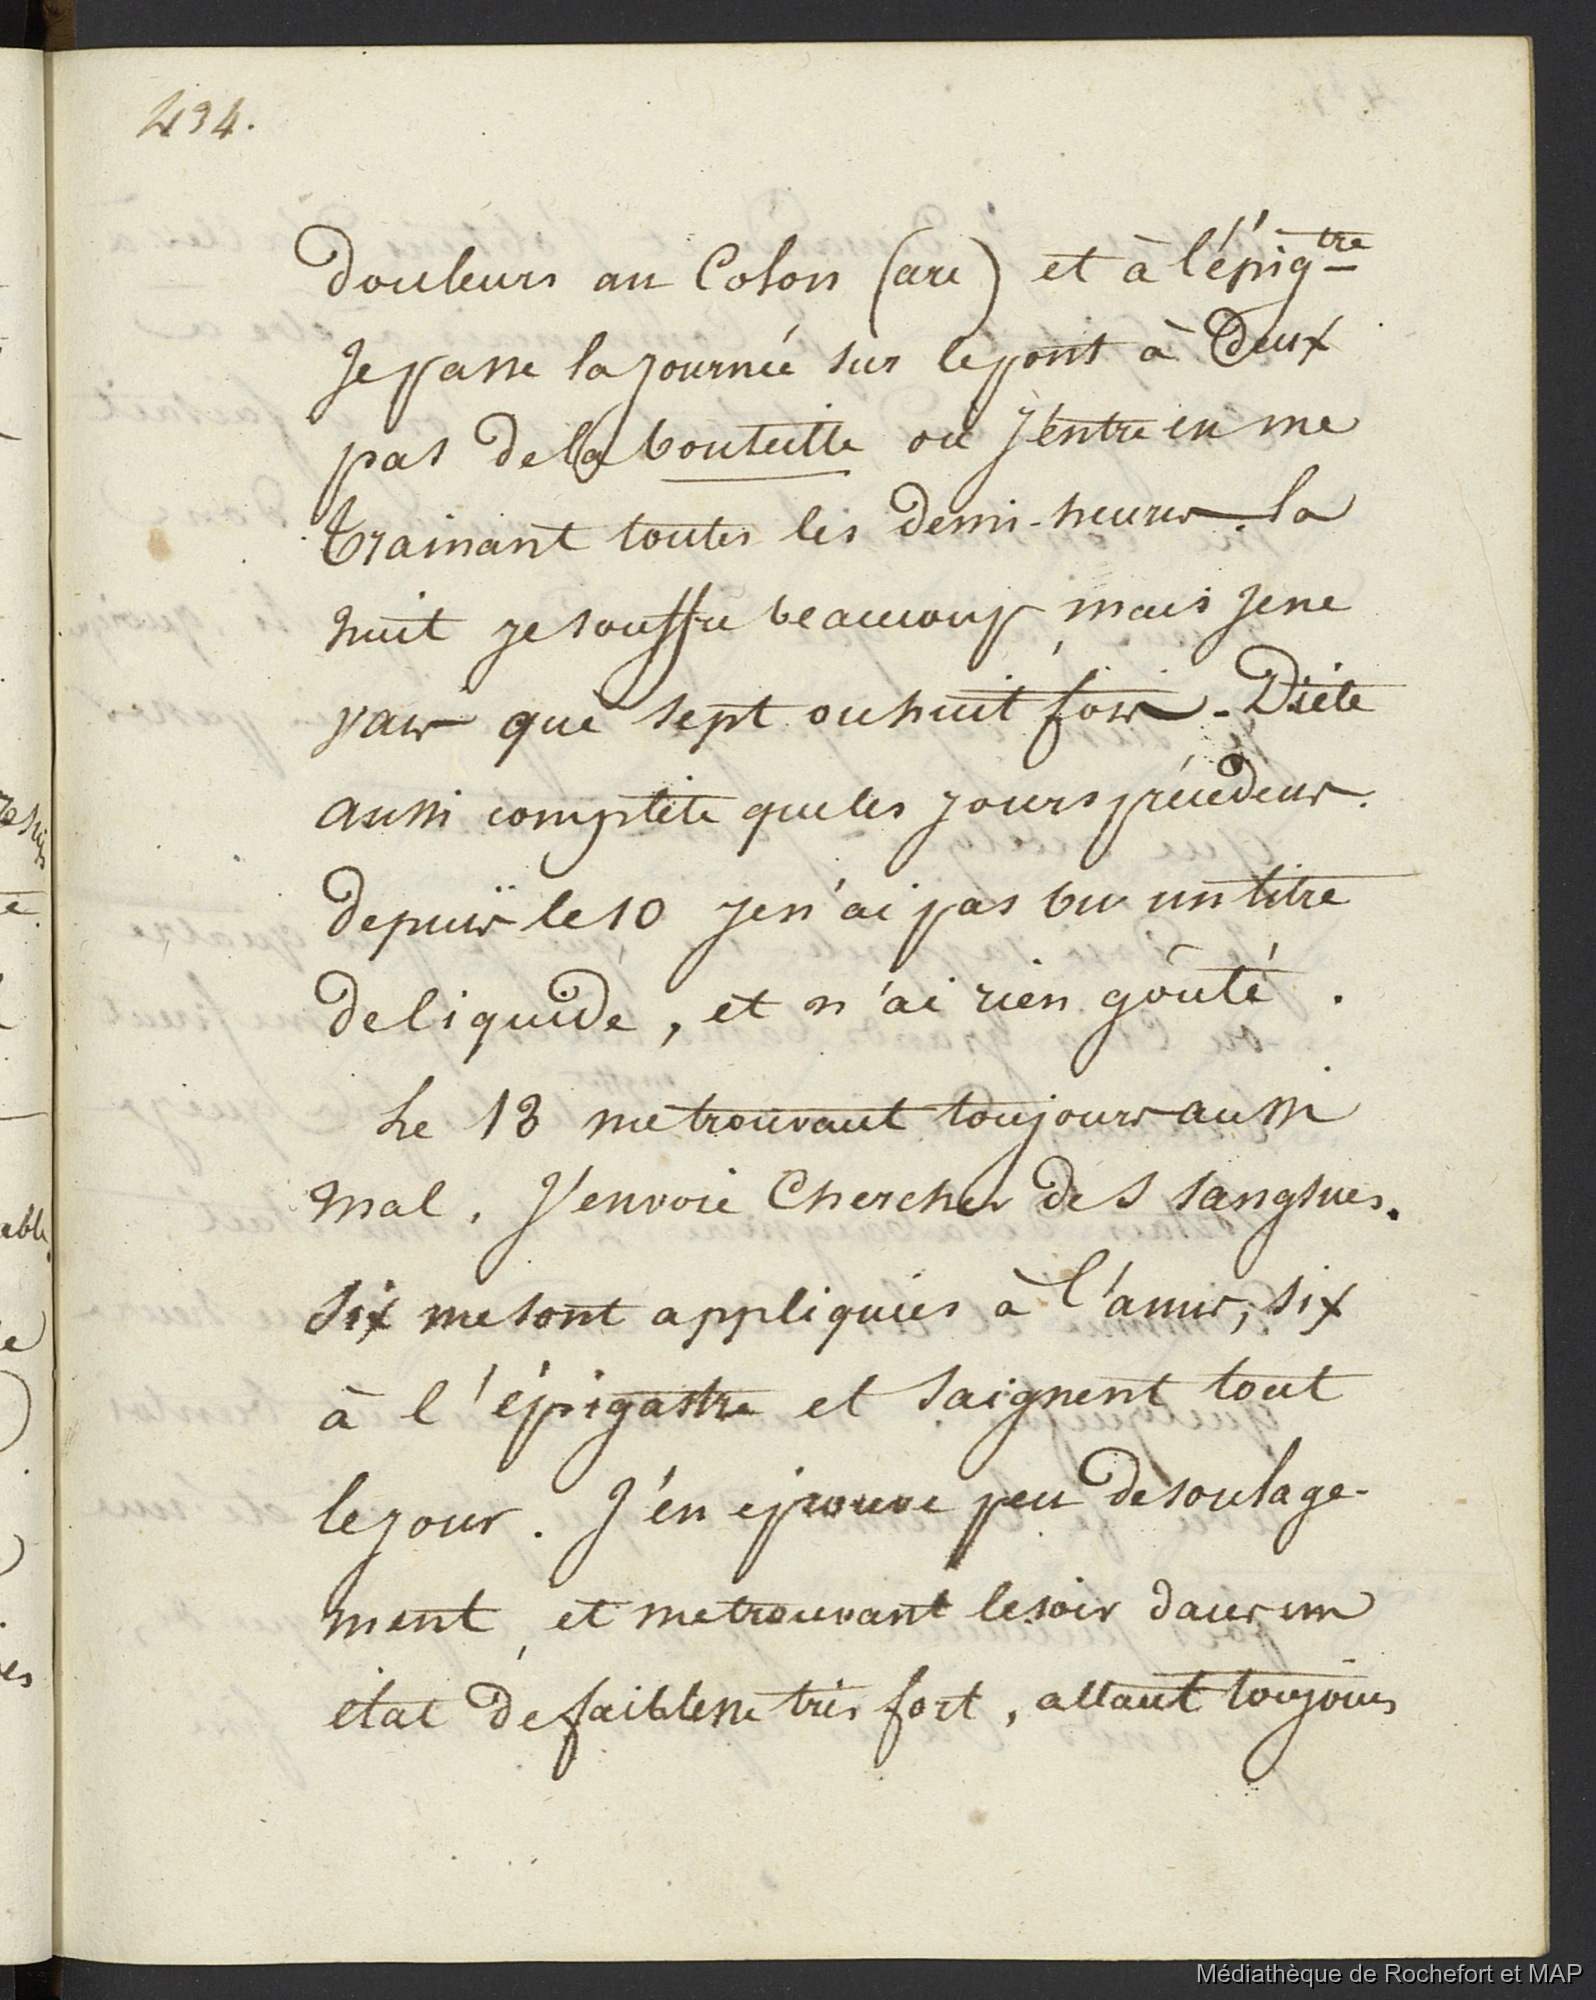 434.
douleurs au Colon (arc) et à l'épig.tre
Je passe la journée sur le pont à deux
pas de la bouteille où j'entre en me
trainant toutes les demi-heures. la
nuit je souffre beaucoup, mais je ne
vais que sept ou huit fois - Diète
aussi complète que les jours précédens.
depuis le 10 je n'ai pas bu un litre
de liquide, et n'ai rien goûté.
Le 13 me trouvant toujours aussi
mal, J'envoie Chercher des sangsues.
Six me sont appliquées à l'anus, six
à l'épigastre et saignent tout
le jour. J'en éprouve peu de soulage-
ment, et me trouvant le soir dans un
état de faiblesse très fort, allant toujours
Médiathèque de Rochefort et MAP